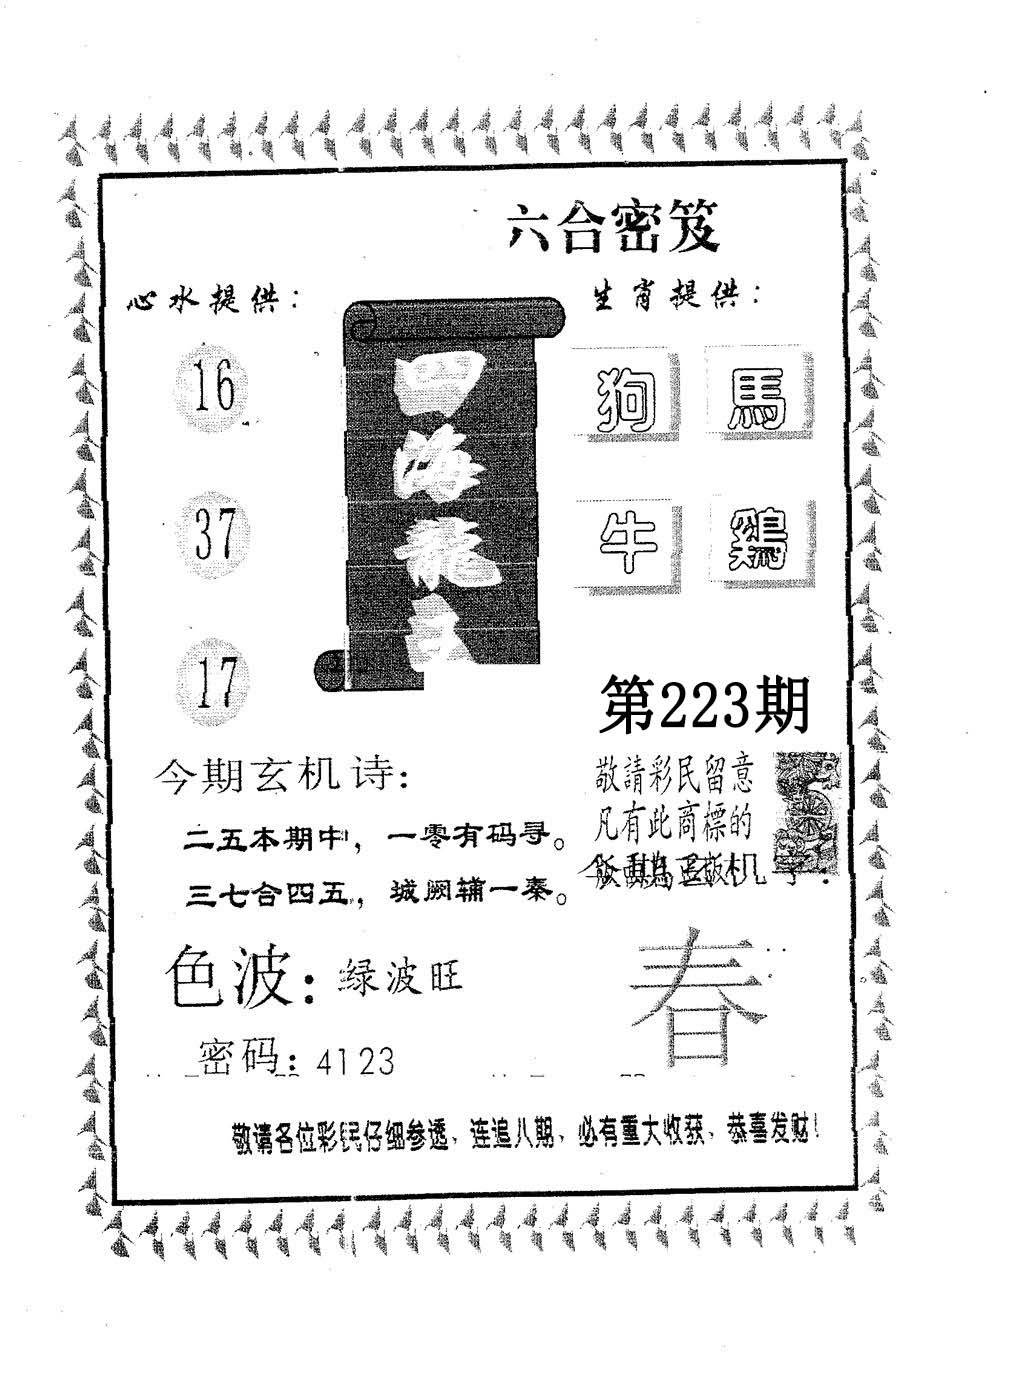 六合密笈
心水提供：
生肖提供：
16
37
17
四海龍
狗 馬
牛 鷄
第223期
今期玄机诗：
二五本期中，一零有码寻。
三七合四五，城阙辅一秦。
敬請彩民留意
凡有此商標的
机字：
色波：绿波旺
春
密码：4123
敬请各位彩民仔细参透、连追八期、必有重大收获、恭喜发财！